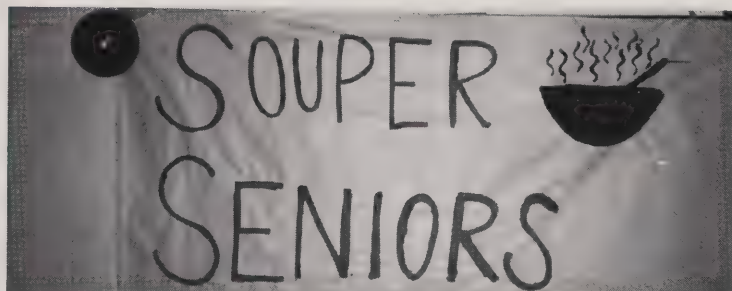 SOUPER
SENIORS